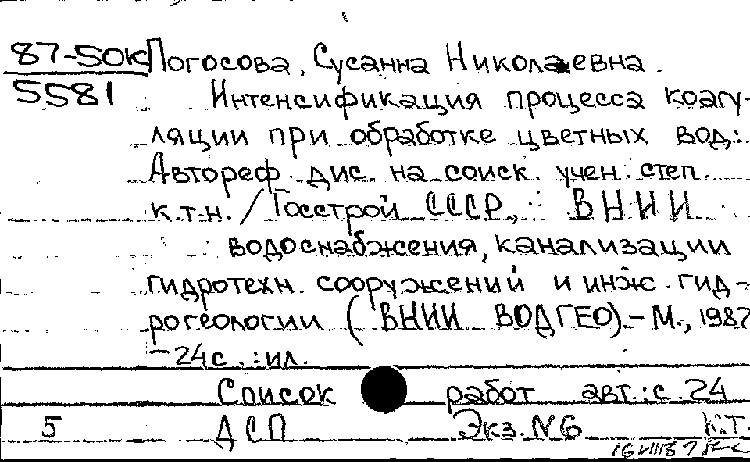 87-50к Погосова, Сусанна Николаевна.
5581 Интенсификация процесса коагу-
ляции при обработке цветных вод:
Автореф дис. на соиск учен. степ.
к.т.н. / Госстрой СССР, ВНИИ
водоснабжения, канализации
гидротехн. сооружений и инж. гид-
рогеологии (ВНИИ ВОДГЕО). – М., 1987
– 24 с. : ил.
Список работ авт.: с. 24
5 ДСП Экз. №6 Н.Т.